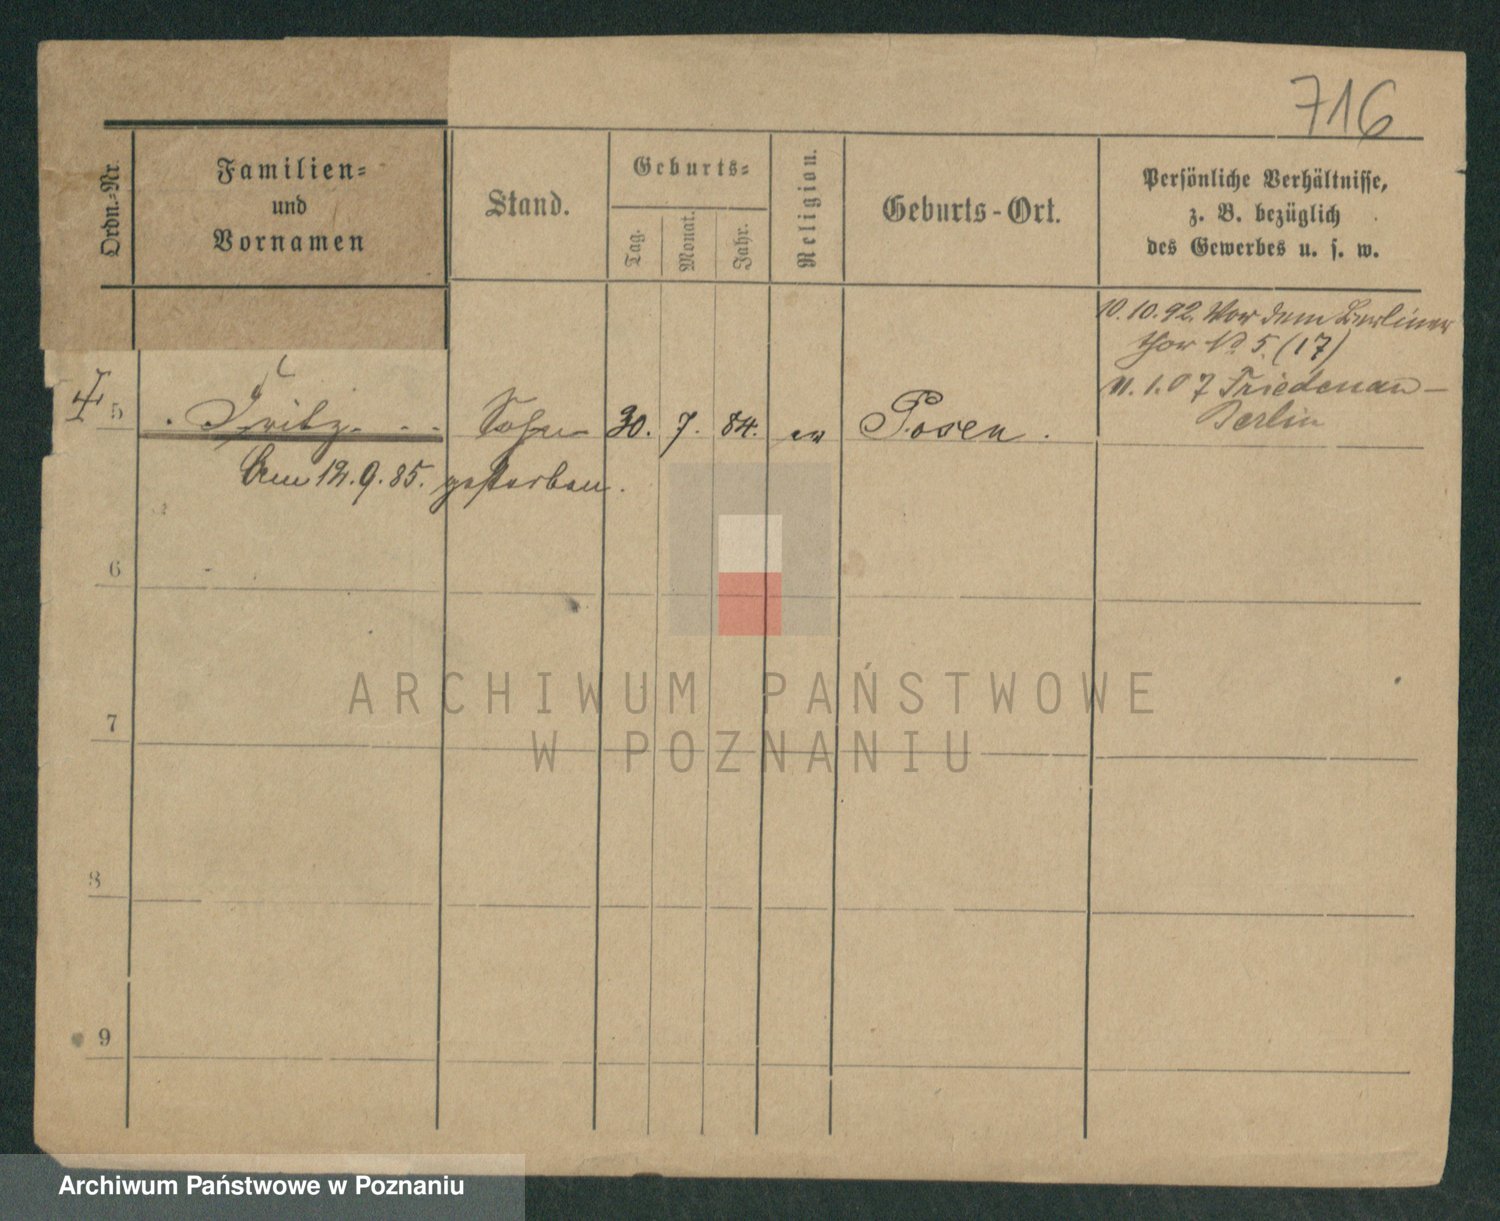 716
Ordn.-Nr.
Familien-
und
Vornamen
Stand.
Geburts-
Tag.
Monat.
Jahr.
Religion.
Geburts-Ort.
Persönliche Verhältnisse,
z. B. bezüglich
des Gewerbes u. s. w.
10. 10. 92. Vor dem Berliner
thor No 5. (17)
11. 1. 07 Friedenau-
Berlin
5 Fritz. Sohn 30. 7. 84. ev Posen.
Am 12. 9. 85. gestorben.
6
7
8
9
ARCHIWUM PAŃSTWOWE
W POZNANIU
Archiwum Państwowe w Poznaniu